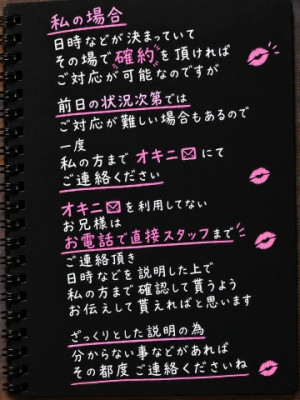 私の場合
日時などが決まっていて
その場で確約を頂ければ
ご対応が可能なのですが
前日の状況次第では
ご対応が難しい場合もあるので
一度
私の方まで オキニ✉にて
ご連絡ください
オキニ✉を利用してない
お兄様は
お電話で直接スタッフまで
ご連絡頂き
日時などを説明した上で
私の方まで確認して貰うよう
お伝えして貰えればと思います
ざっくりとした説明の為
分からない事などがあれば
その都度ご連絡くださいね